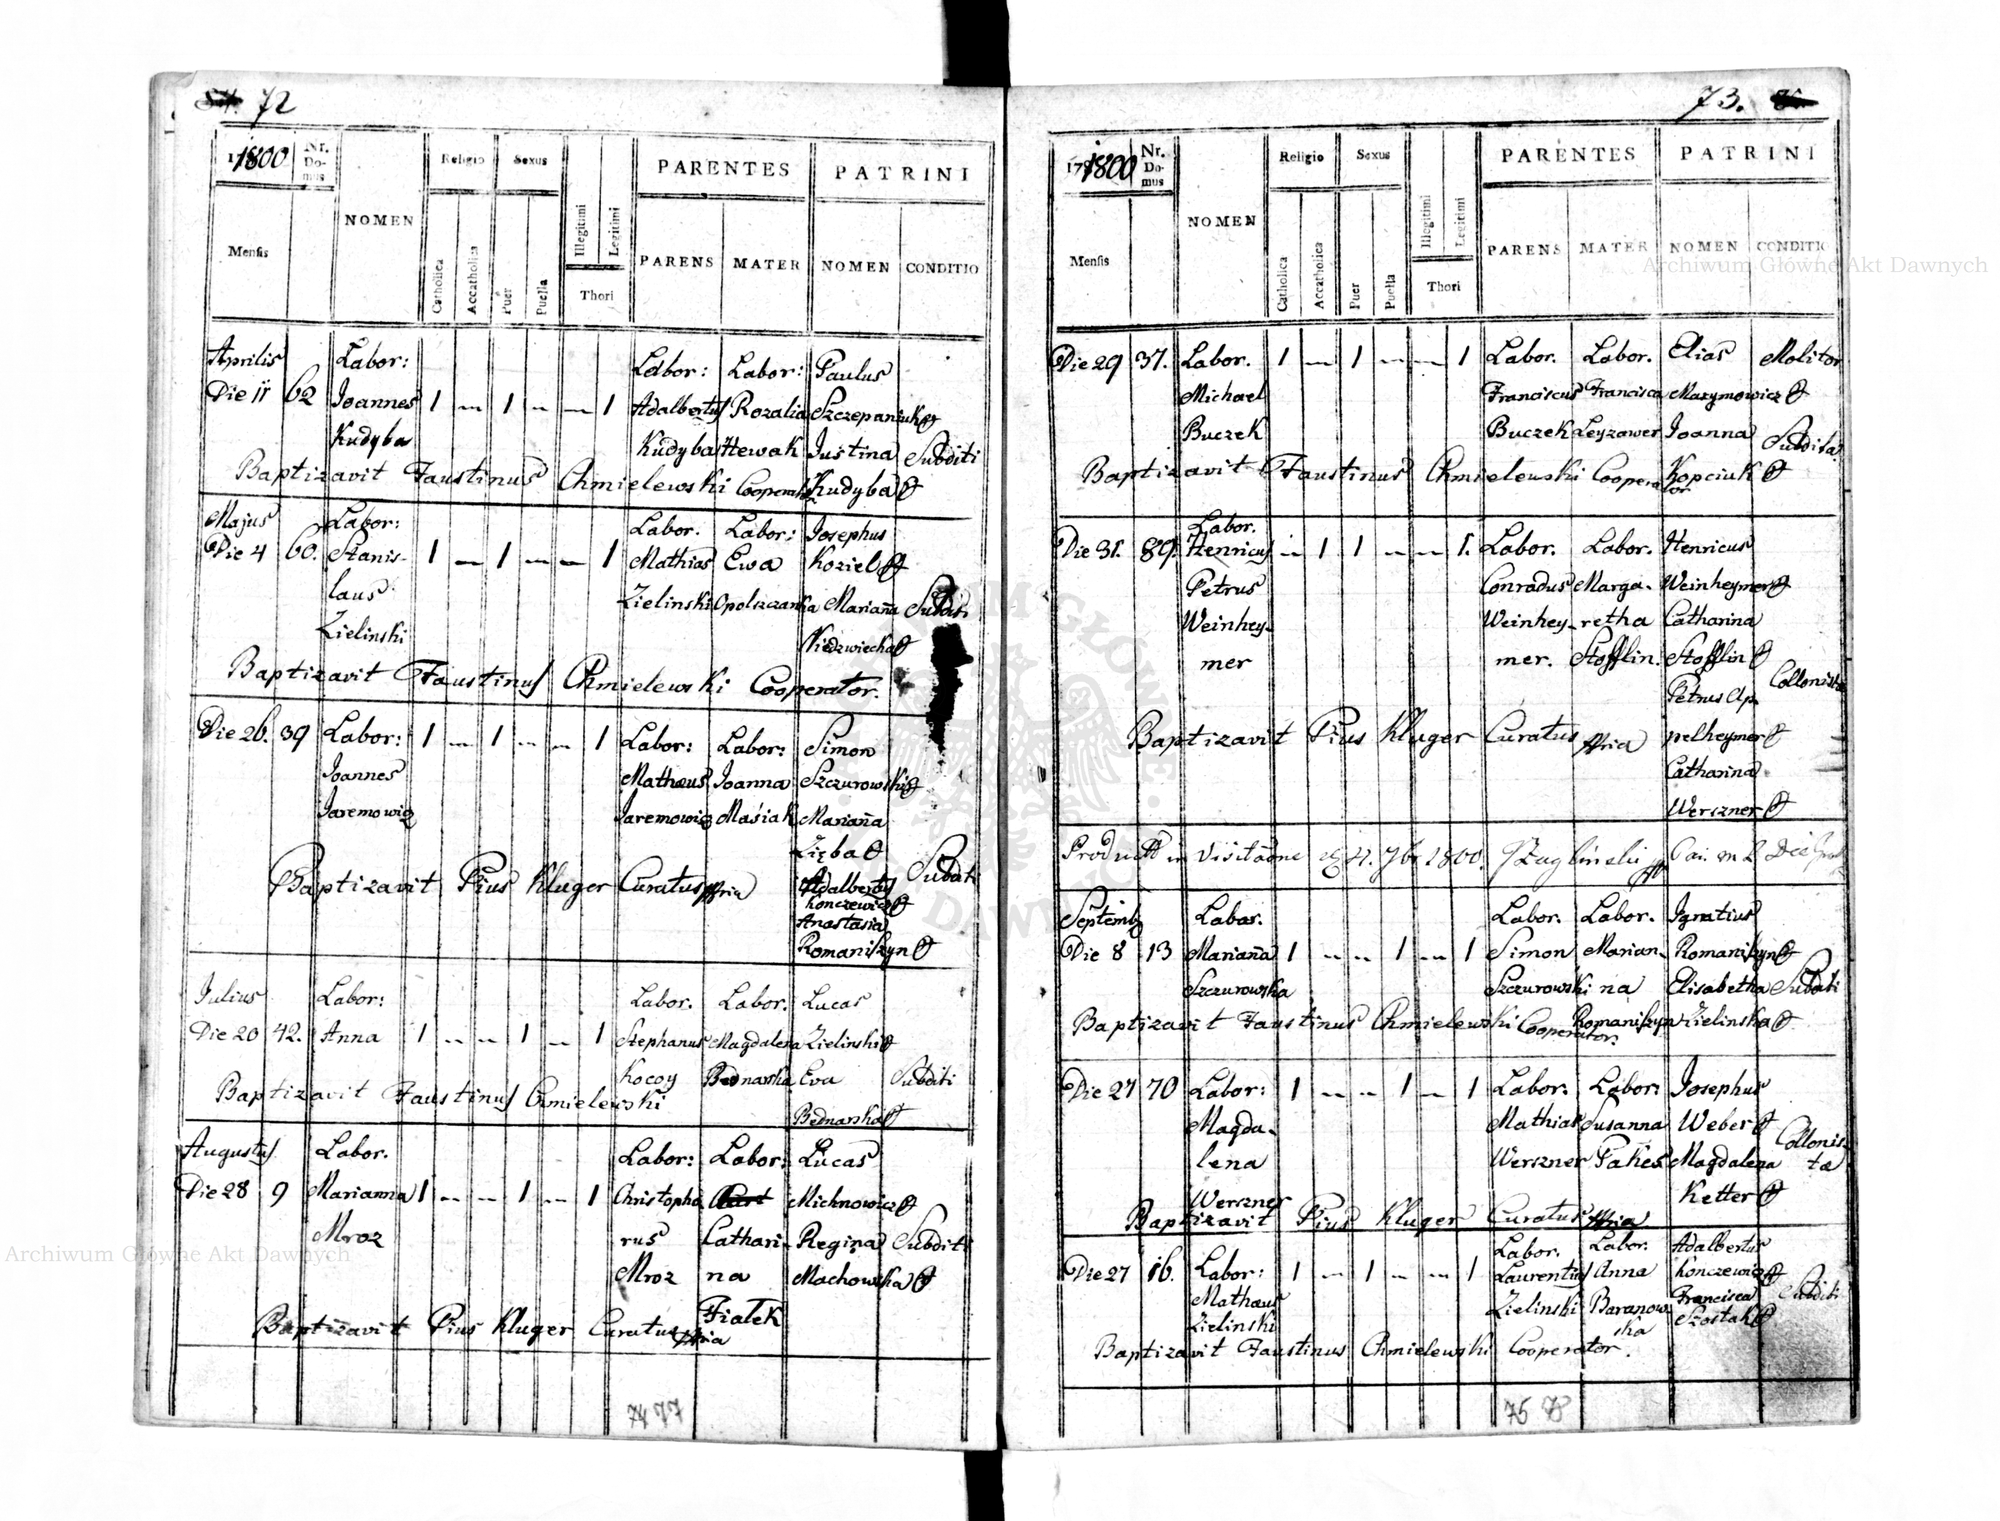 72
1800 Nr. Domus NOMEN Religio Sexus PARENTES PATRINI
Mensis Catholica Accatholica Puer Puella Illegitimi Legitimi Thori PARENS MATER NOMEN CONDITIO
Aprilis Labor: Labor: Labor: Paulus
Die 11 62 Joannes 1 — 1 — — 1 Adalbertus Rozalia Szczepaniuk
Kudyba Kudyba Hewak Justina Subditi
Baptizavit Faustinus Chmielewski Cooperator Kudyba
Majus Labor: Labor. Labor: Josephus
Die 4 60. Stanis- 1 — 1 — — 1 Mathias Ewa Koziel
laus Zielinski Opolszczanka Marianna Subditi
Zielinski Niedzwiecka
Baptizavit Faustinus Chmielewski Cooperator.
Die 26. 39 Labor: 1 — 1 — — 1 Labor: Labor: Simon
Joannes Mathæus Joanna Szczurowski
Jaremowicz Jaremowicz Masiak Marianna
Zięba
Baptizavit Pius Kluger Curatus mpria Subditi
Adalbertus
Konczewicz
Anastasia
Romaniszyn
Julius Labor: Labor. Labor. Lucas
Die 20 42. Anna 1 — — 1 — 1 Stephanus Magdalena Zielinski
Kocoy Bednarska Eva Subditi
Baptizavit Faustinus Chmielewski
Bednarska
Augustus Labor. Labor: Labor: Lucas
Die 28 9 Marianna 1 — — 1 — 1 Christopho Michnowicz
Mroz rus Cathari- Regina Subditi
Mroz na Machowska
Baptizavit Pius Kluger Curatus mpria Fiałek
74 77
73.
1800 Nr. Domus NOMEN Religio Sexus PARENTES PATRINI
Mensis Catholica Accatholica Puer Puella Illegitimi Legitimi Thori PARENS MATER NOMEN CONDITIO
Die 29 37. Labor. 1 — 1 — — 1 Labor. Labor. Elias Molitor
Michael Franciscus Francisca Maxymowicz
Buczek Buczek Leyzawer Joanna Subdita
Baptizavit Faustinus Chmielewski Cooperator Kopciuk
Labor.
Die 31. 89. Henricus — 1 1 — — 1. Labor. Labor. Henricus
Petrus Conradus Marga- Weinheymer
Weinhey- Weinhey- retha Catharina
mer mer. Stofflin. Stofflin
Petrus Ap- Collonistæ
Baptizavit Pius Kluger Curatus mpria pelheymer
Catharina
Werszner
1800.
Septemb Labor. Labor. Labor. Ignatius
Die 8 13 Marianna 1 — — 1 — 1 Simon Marian- Romaniszyn
Szczurowska Szczurowski na Elisabetha Subditi
Baptizavit Faustinus Chmielewski Cooperator. Romaniszyn Zielinska
Die 27 70 Labor: 1 — — 1 — 1 Labor: Labor: Josephus
Magda- Mathias Susanna Weber Collonis-
lena Werszner Pakes Magdalena tæ
Werszner Ketter
Baptizavit Pius Kluger Curatus mpria
Labor. Labor. Adalbertus
Die 27 16. Labor: 1 — 1 — — 1 Laurentius Anna Konczewicz Subditi
Mathæus Zielinski Baranow- Francisca
Zielinski ska Szostak
Baptizavit Faustinus Chmielewski Cooperator.
75 78
Archiwum Główne Akt Dawnych
Archiwum Główne Akt Dawnych